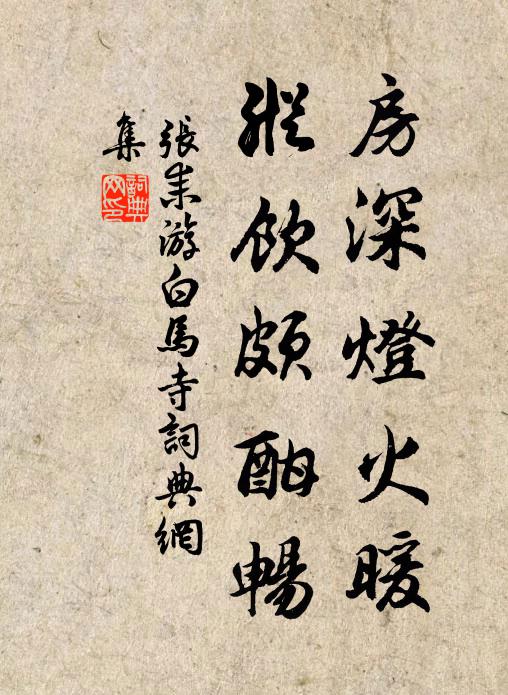 房深燈火暖
縱飲頗酣暢
張耒游白馬寺詞典網
集
詞典
网印